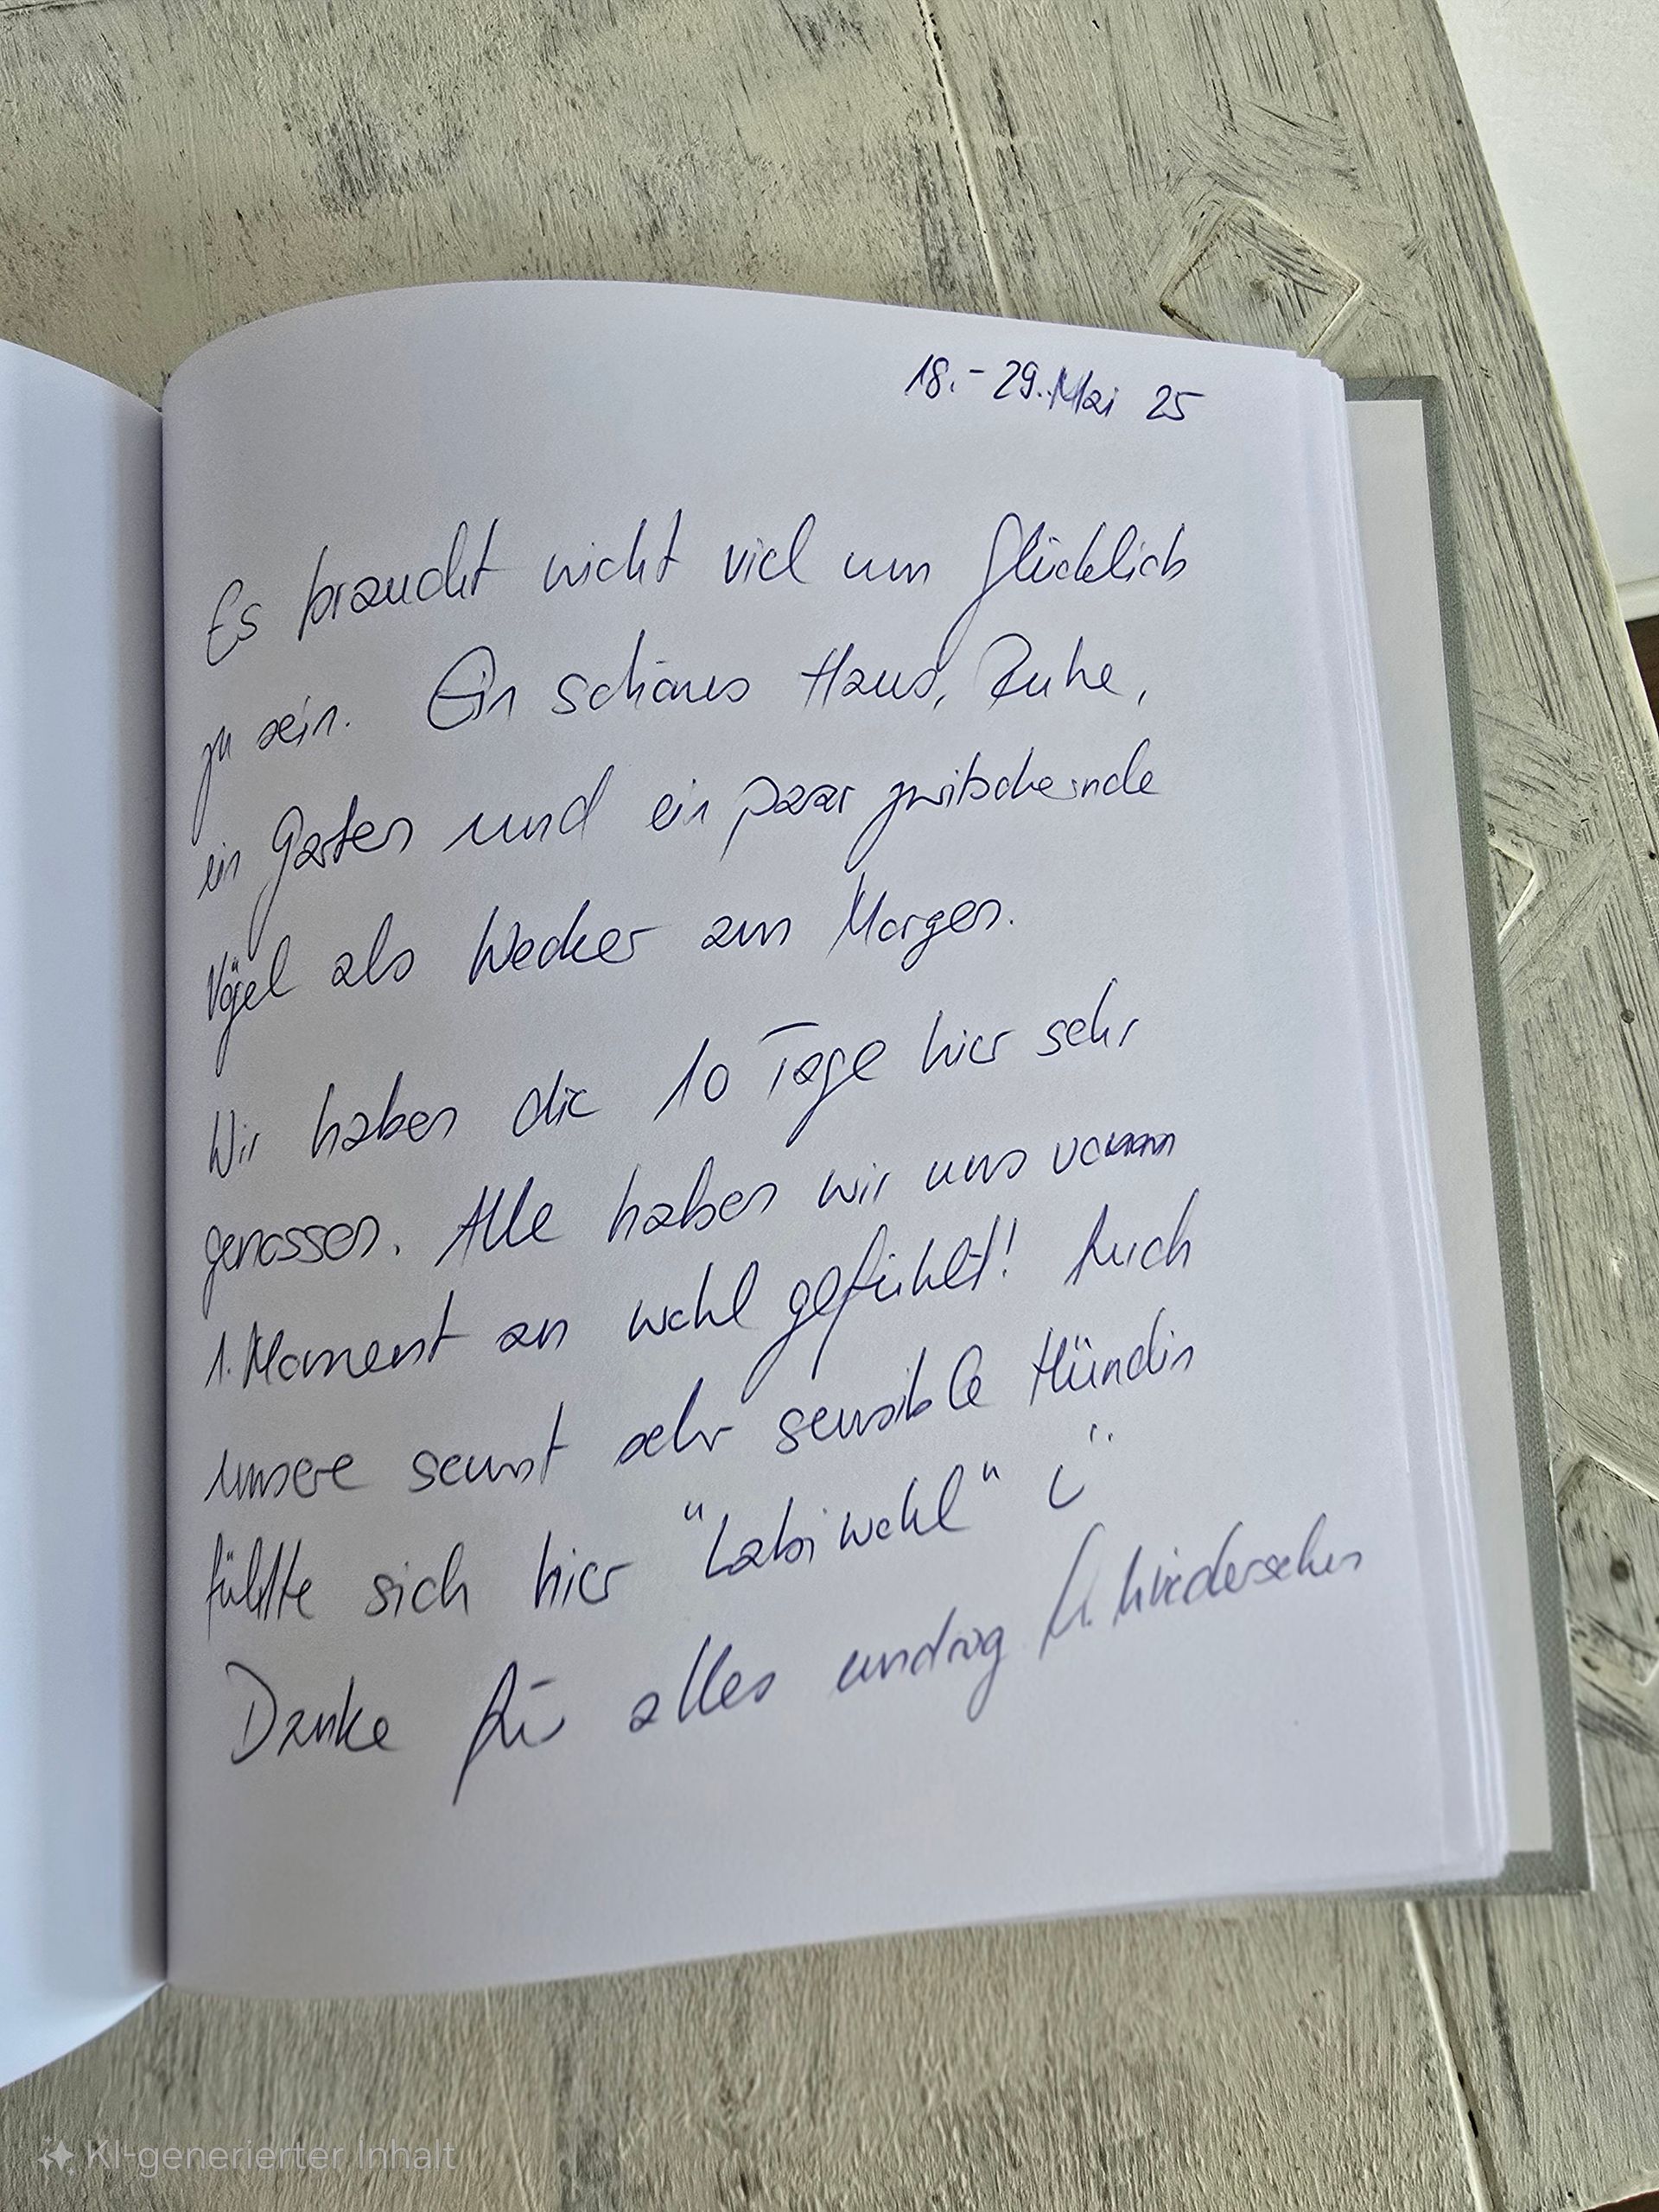 18.-29. Mai 25
Es braucht nicht viel um glücklich
zu sein. Ein schönes Haus, Ruhe,
ein Garten und ein paar zwitschernde
Vögel als Wecker am Morgen.
Wir haben die 10 Tage hier sehr
genossen. Alle haben wir uns vom
1. Moment an wohl gefühlt! Auch
unsere sonst sehr sensible Hündin
fühlte sich hier "Labiwohl"
Danke für alles und Wiedersehen
KI-generierter Inhalt